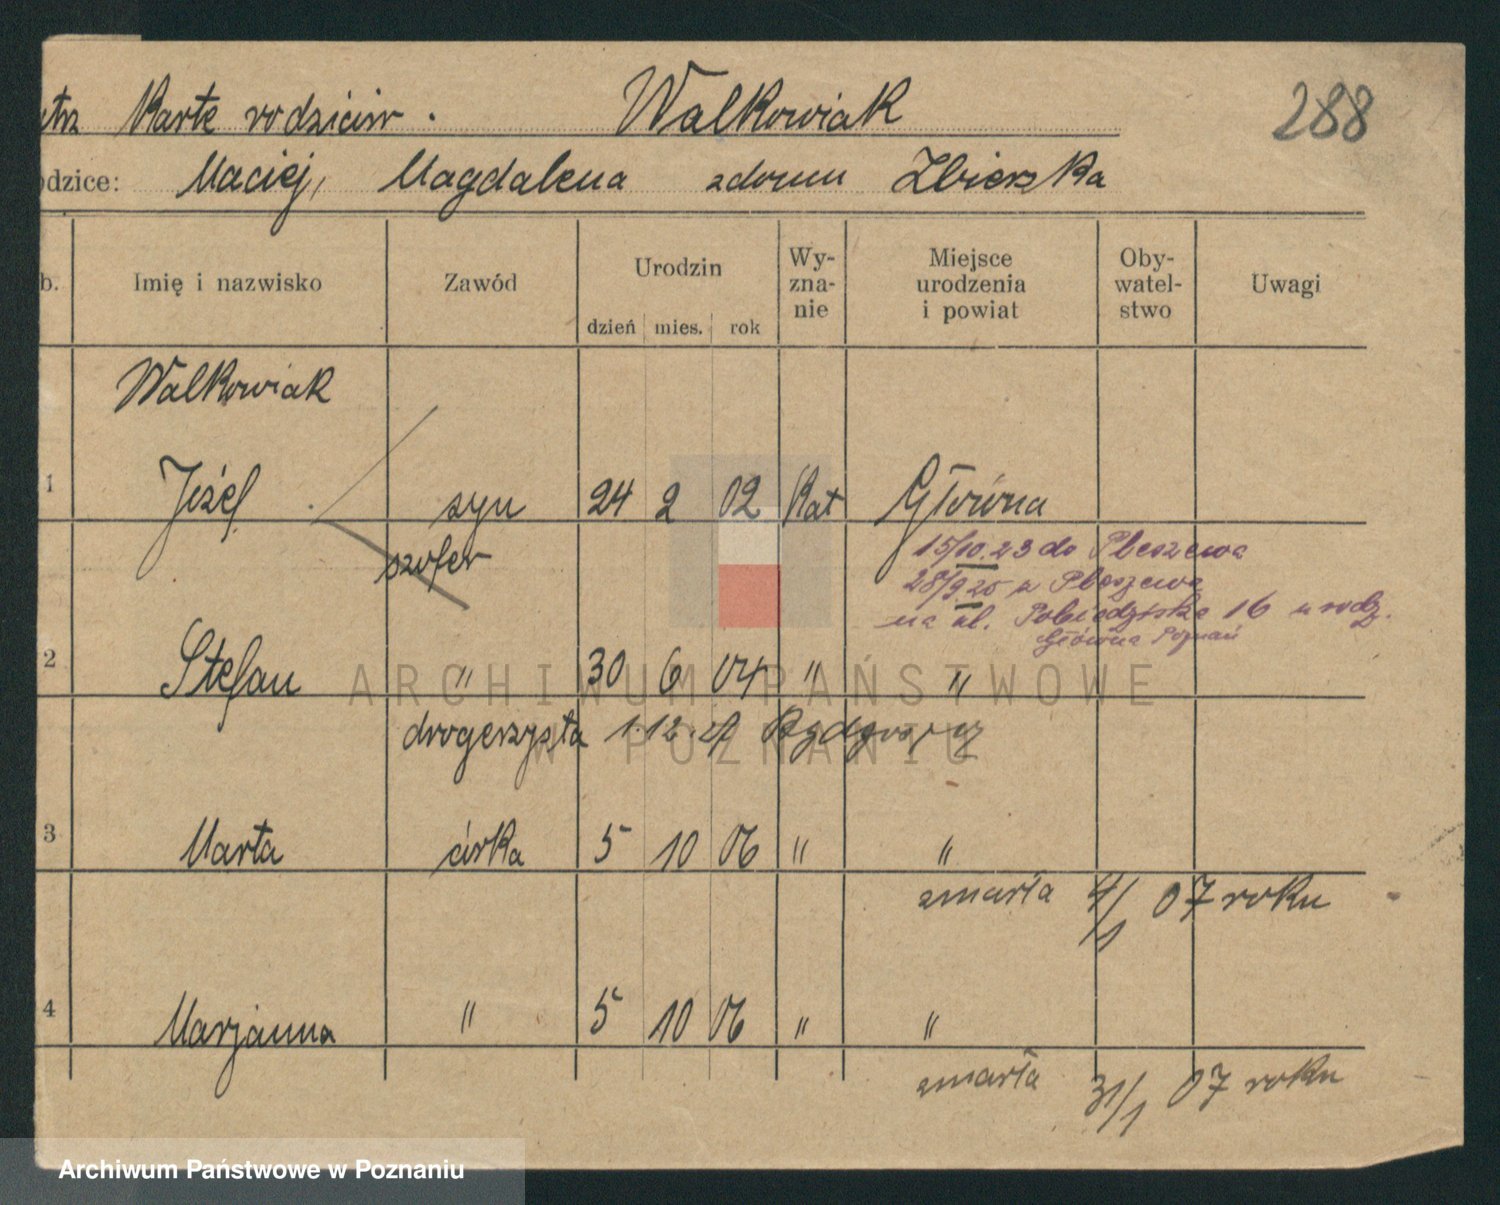 Karte rodziców. Walkowiak 288
odzice: Maciej, Magdalena zdomu Zbierska
b. Imię i nazwisko Zawód Urodzin dzień mies. rok Wy-zna-nie Miejsce urodzenia i powiat Oby-watel-stwo Uwagi
Walkowiak
1 Józef syn 24 2 02 Kat Główna
szofer 15/10.23 do Pleszewa
28/9.25 z Pleszewa
na ul. Pobiedziska 16 u rodz.
Główna Poznań
2 Stefan " 30 6 04 " "
drogerzysta 1.12. Bydgoszcz
3 Marta córka 5 10 06 " "
zmarła 4/1 07 roku
4 Marjanna " 5 10 06 " "
zmarła 31/1 07 roku
ARCHIWUM PAŃSTWOWE
W POZNANIU
Archiwum Państwowe w Poznaniu